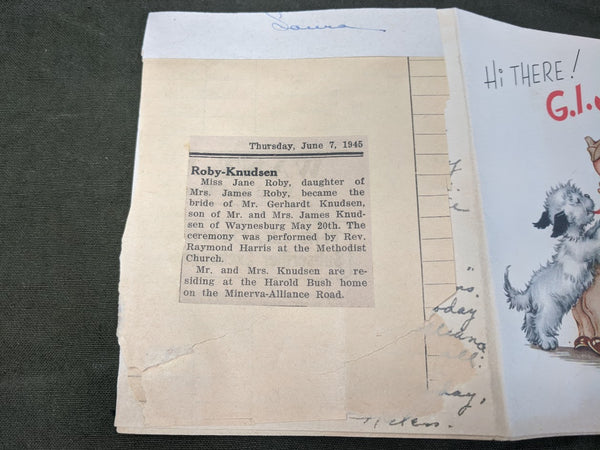 Laura
Thursday, June 7, 1945
Roby-Knudsen
Miss Jane Roby, daughter of
Mrs. James Roby, became the
bride of Mr. Gerhardt Knudsen,
son of Mr. and Mrs. James Knud-
sen of Waynesburg May 20th. The
ceremony was performed by Rev.
Raymond Harris at the Methodist
Church.
Mr. and Mrs. Knudsen are re-
siding at the Harold Bush home
on the Minerva-Alliance Road.
Hi THERE!
G.I.